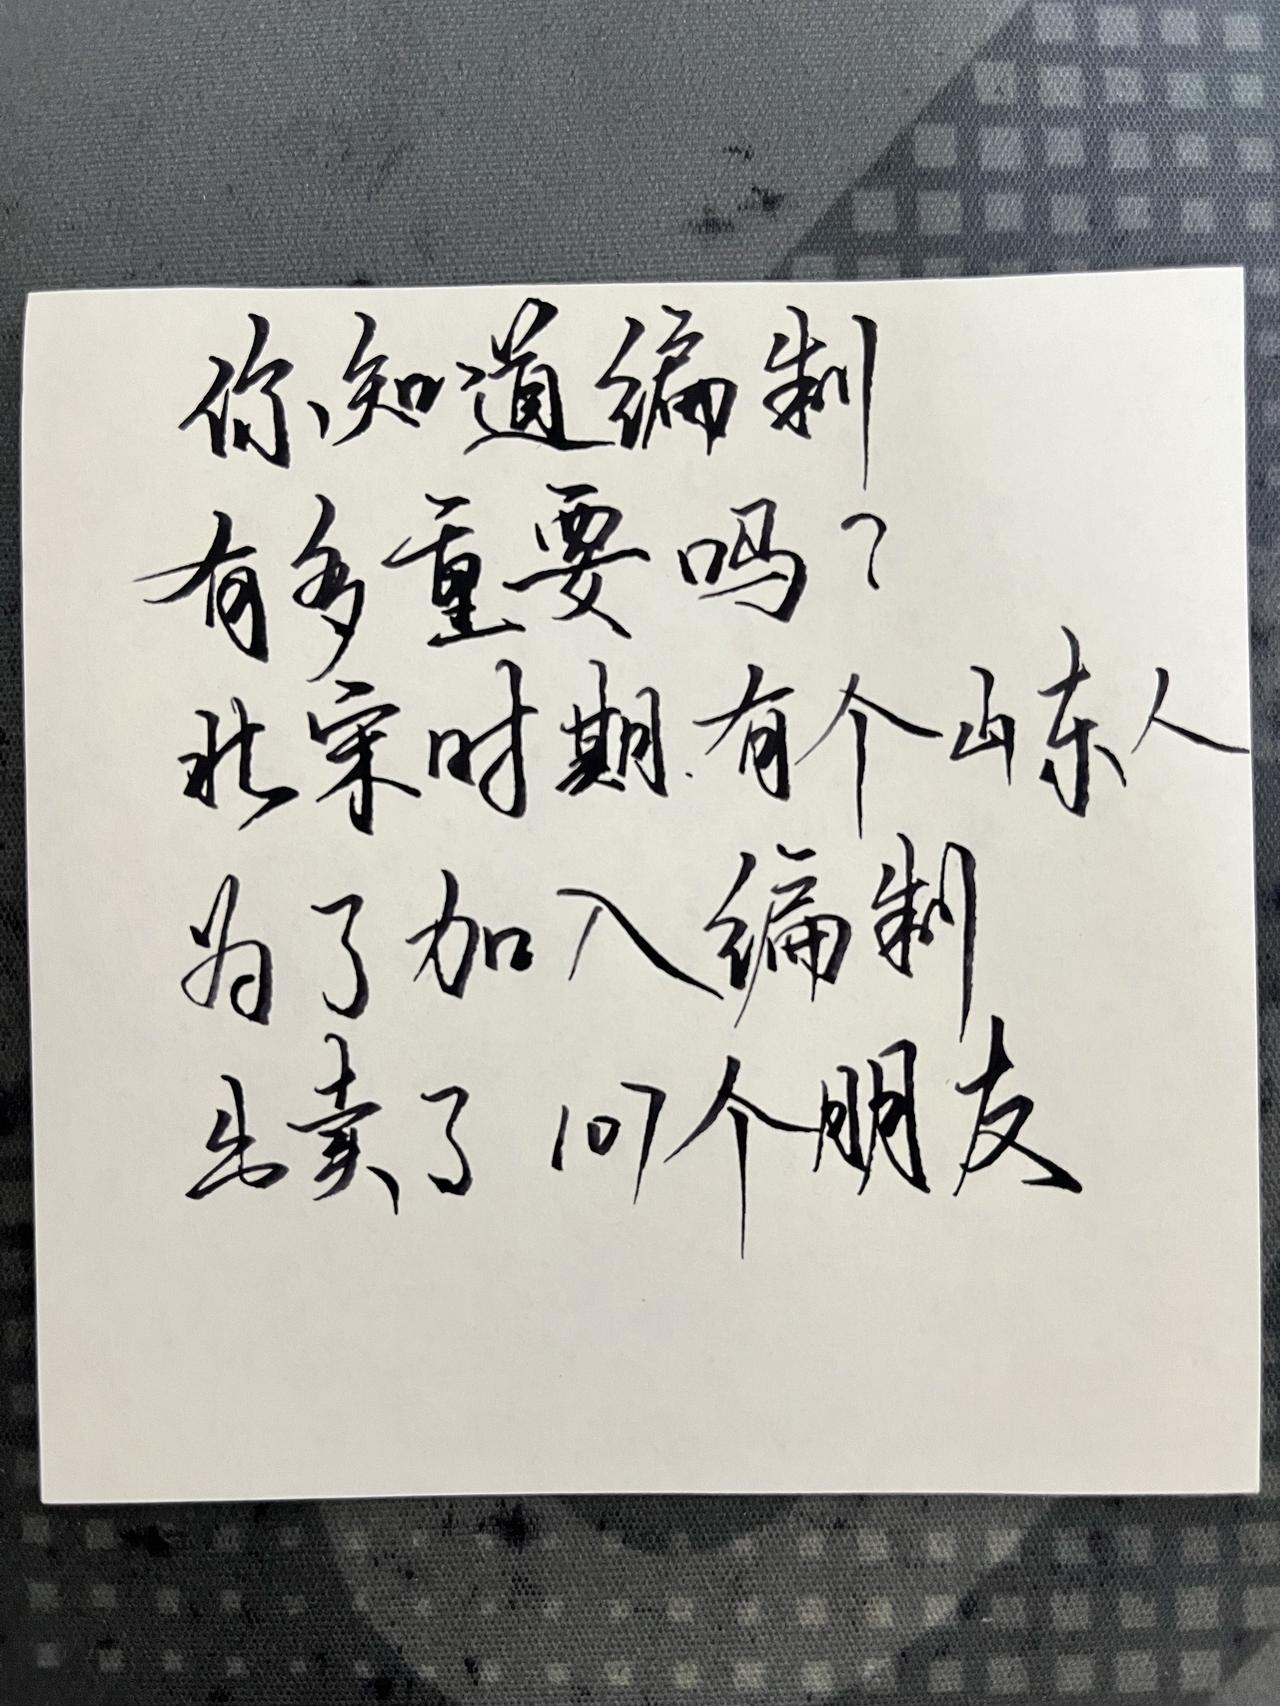 你知道编制
有多重要吗？
北宋时期.有个山东人
为了加入编制
出卖了107个朋友